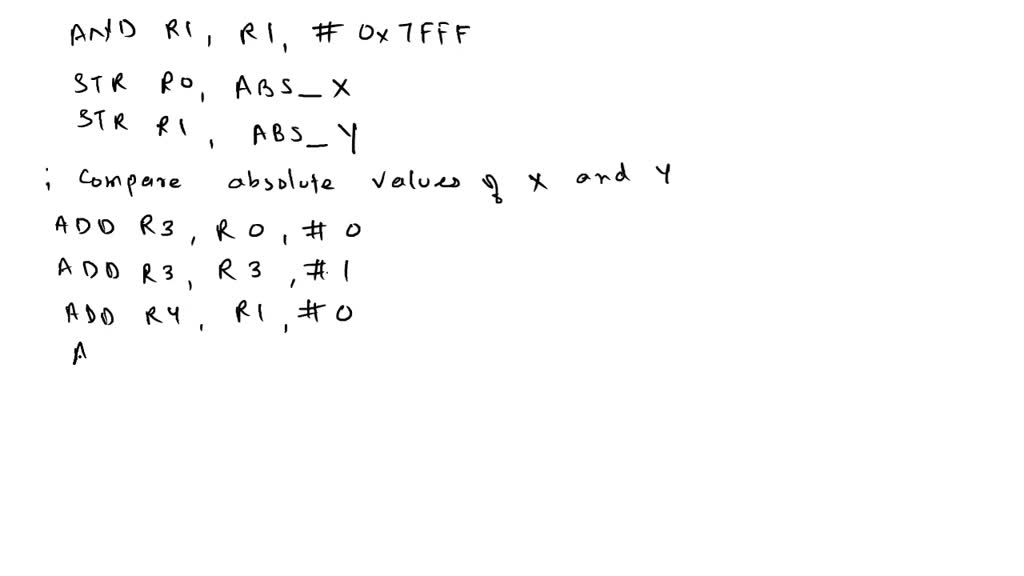 AND R1, R1, # 0x7FFF
STR R0, ABS_X
STR R1, ABS_Y
; Compare absolute values of X and Y
ADD R3, R0, # 0
ADD R3, R3, # 1
ADD R4, R1, # 0
A